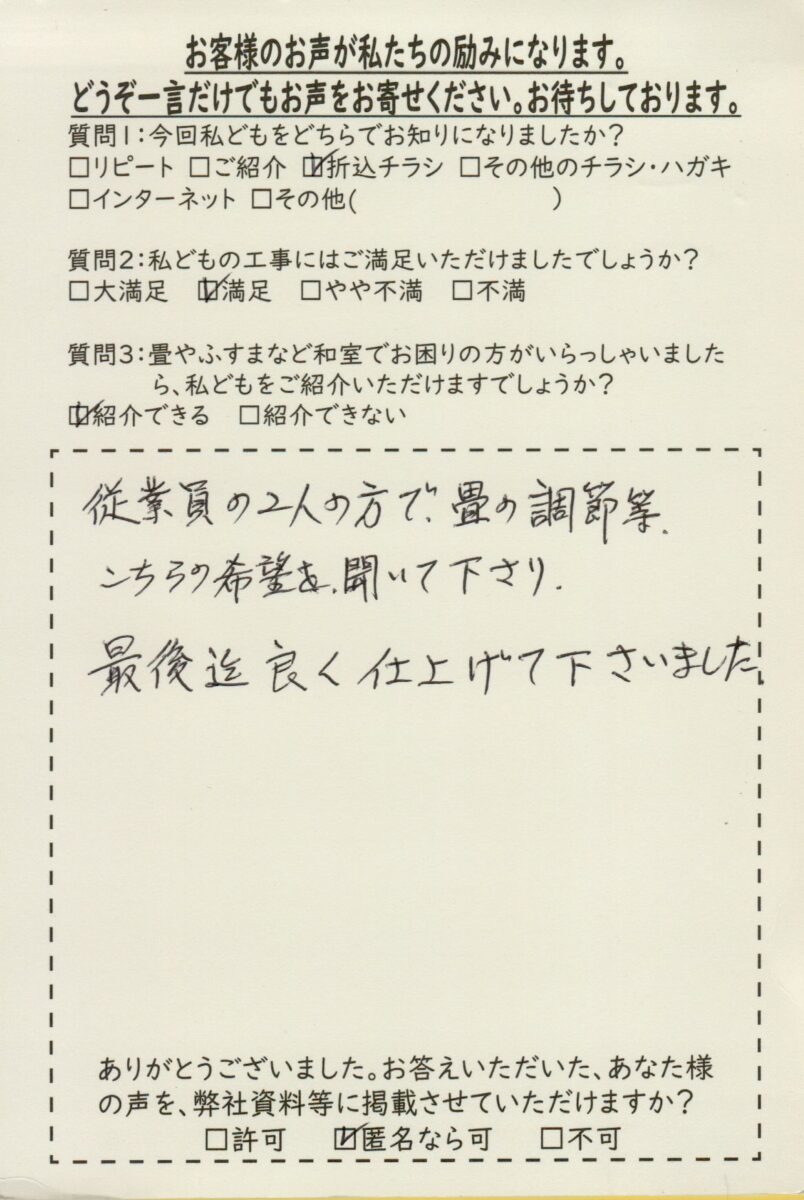 お客様のお声が私たちの励みになります。
どうぞ一言だけでもお声をお寄せください。お待ちしております。
質問1：今回私どもをどちらでお知りになりましたか？
□リピート □ご紹介 ☑折込チラシ □その他のチラシ・ハガキ
□インターネット □その他(　　　　　　　)
質問2：私どもの工事にはご満足いただけましたでしょうか？
□大満足 ☑満足 □やや不満 □不満
質問3：畳やふすまなど和室でお困りの方がいらっしゃいました
ら、私どもをご紹介いただけますでしょうか？
☑紹介できる □紹介できない
従業員の2人の方で、畳の調節等、
こちらの希望を、聞いて下さり、
最後迄良く仕上げて下さいました。
ありがとうございました。お答えいただいた、あなた様
の声を、弊社資料等に掲載させていただけますか？
□許可 ☑匿名なら可 □不可